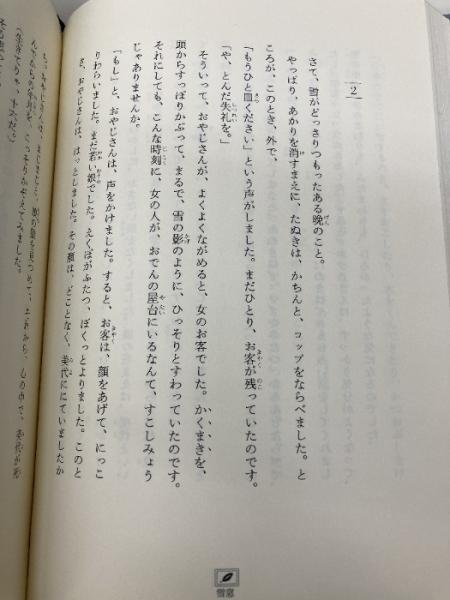 2
さて、雪がどっさりつもったある晩のこと。
やっぱり、あかりを消すまえに、たぬきは、かちんと、コップをならべました。と
ころが、このとき、外で、
「もうひと皿ください」という声がしました。まだひとり、お客が残っていたのです。
「や、とんだ失礼を。」
そういって、おやじさんが、よくよくながめると、女のお客でした。かくまきを、
頭からすっぽりかぶって、まるで、雪の影のように、ひっそりとすわっていたのです。
それにしても、こんな時刻に、女の人が、おでんの屋台にいるなんて、すこしみょう
じゃありませんか。
「もし」と、おやじさんは、声をかけました。すると、お客は、顔をあげて、にっこ
りわらいました。まだ若い娘でした。えくぼがふたつ、ぽくっとよりました。このと
き、おやじさんは、はっとしました。その顔は、どことなく、美代ににていましたか
雪窓